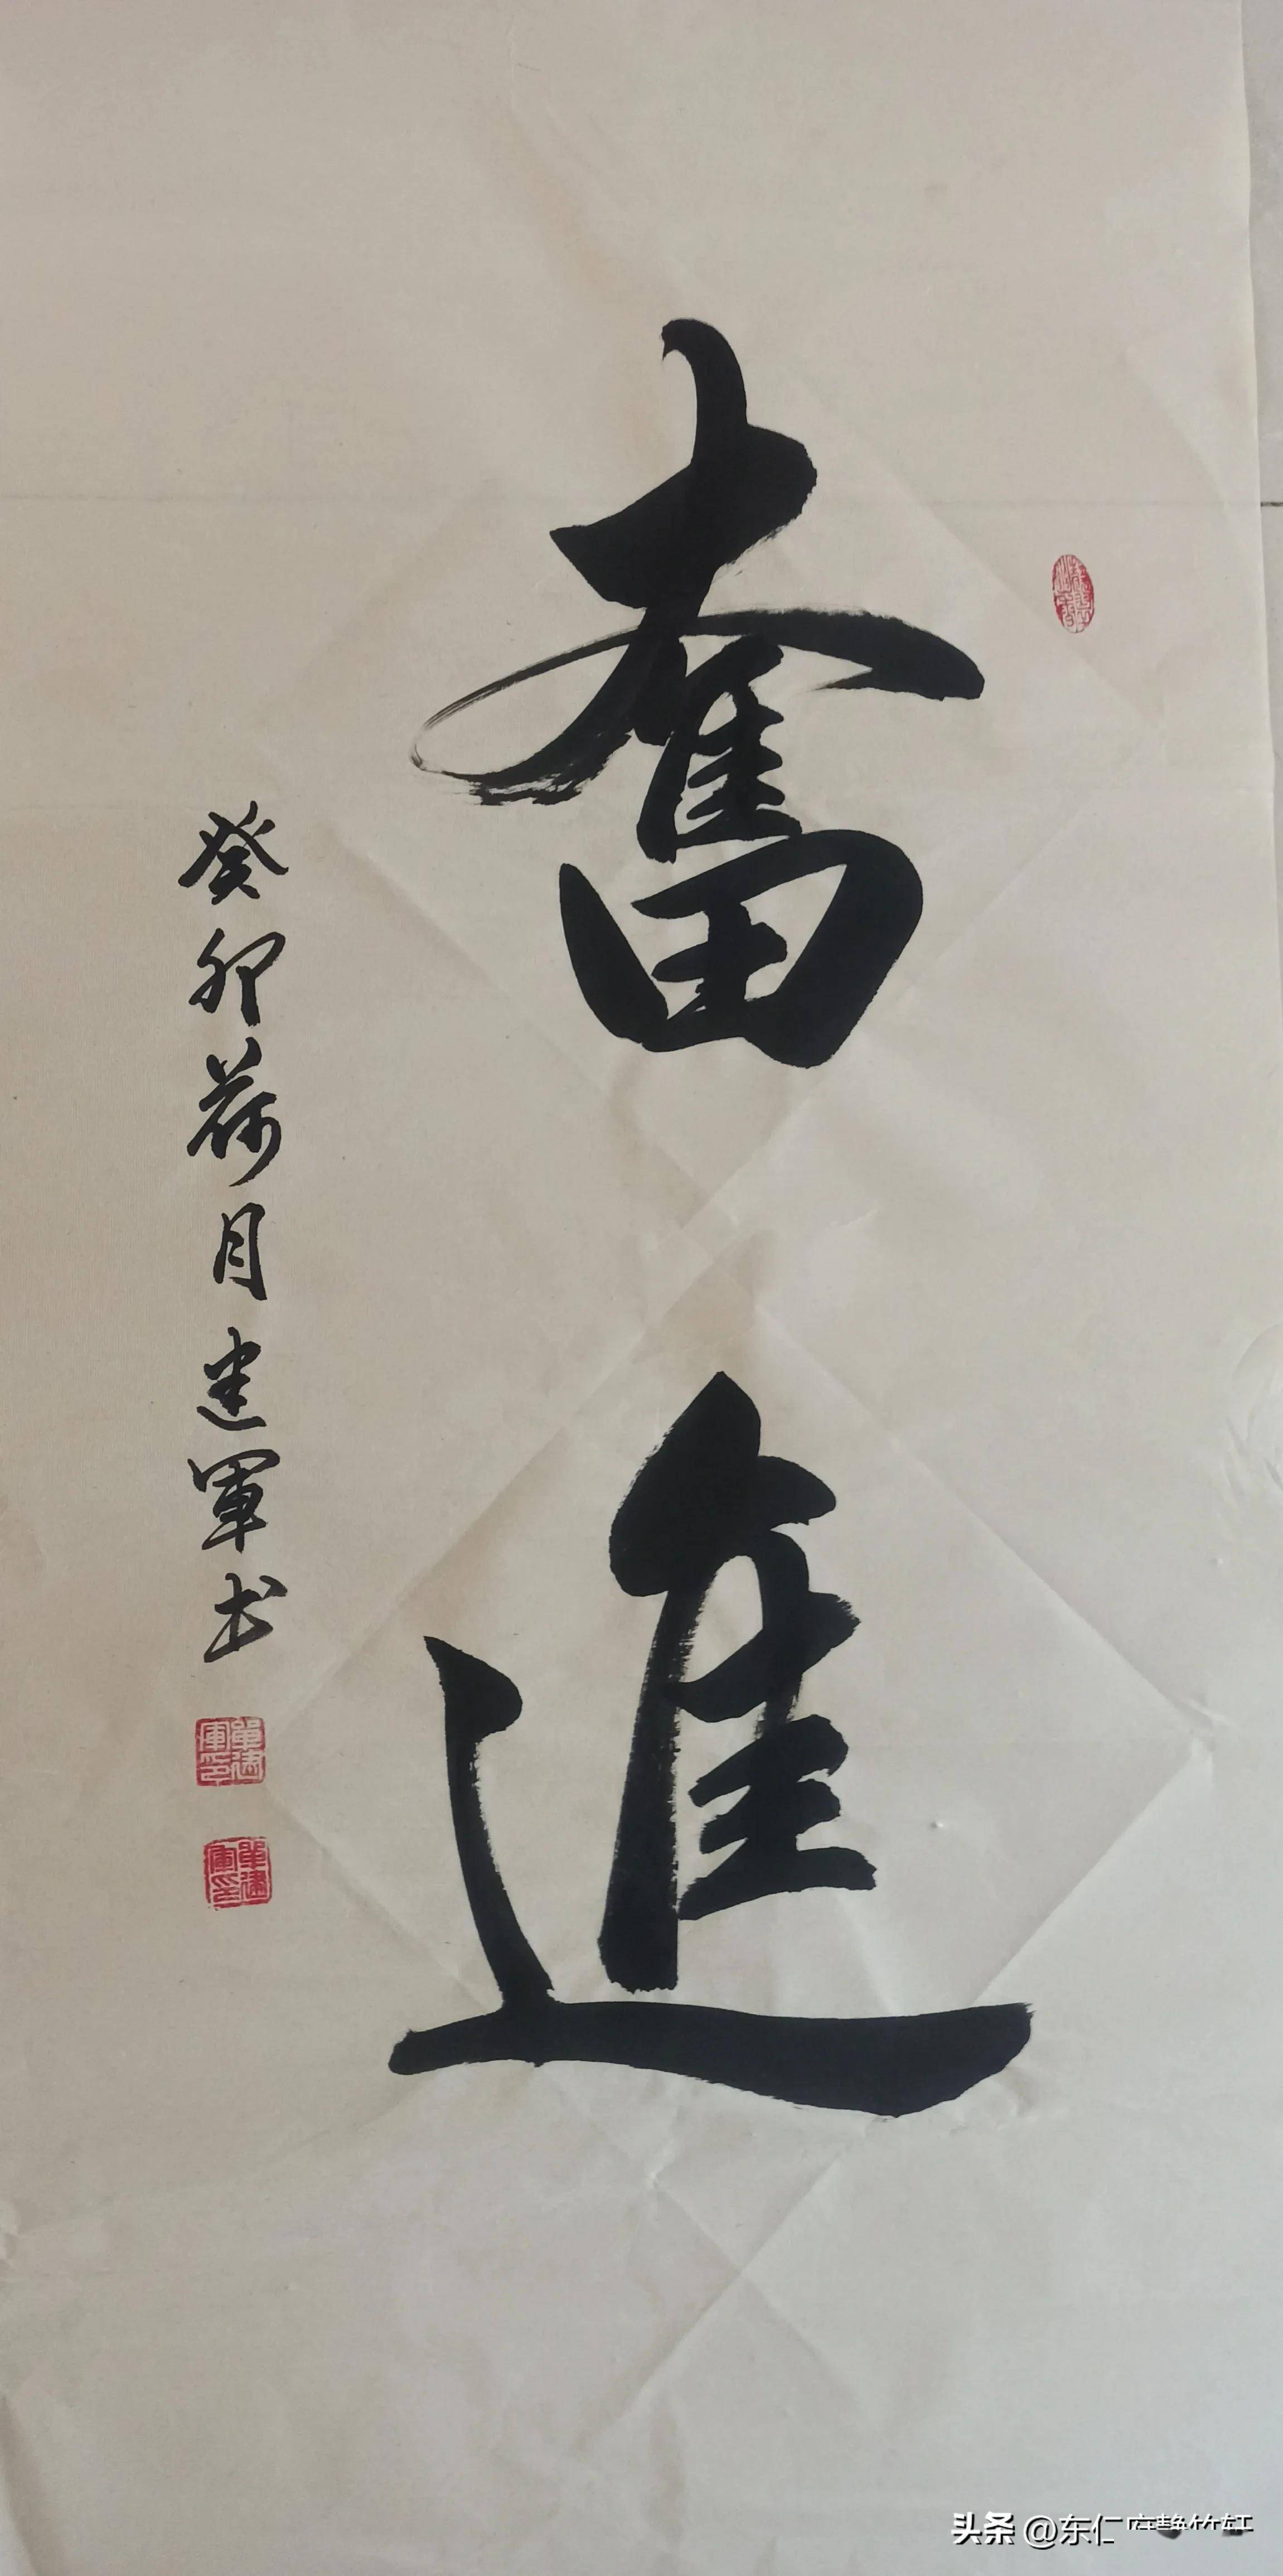 奮
進
癸卯荷月建軍书
單建軍印
單建軍印
头条 @东仁